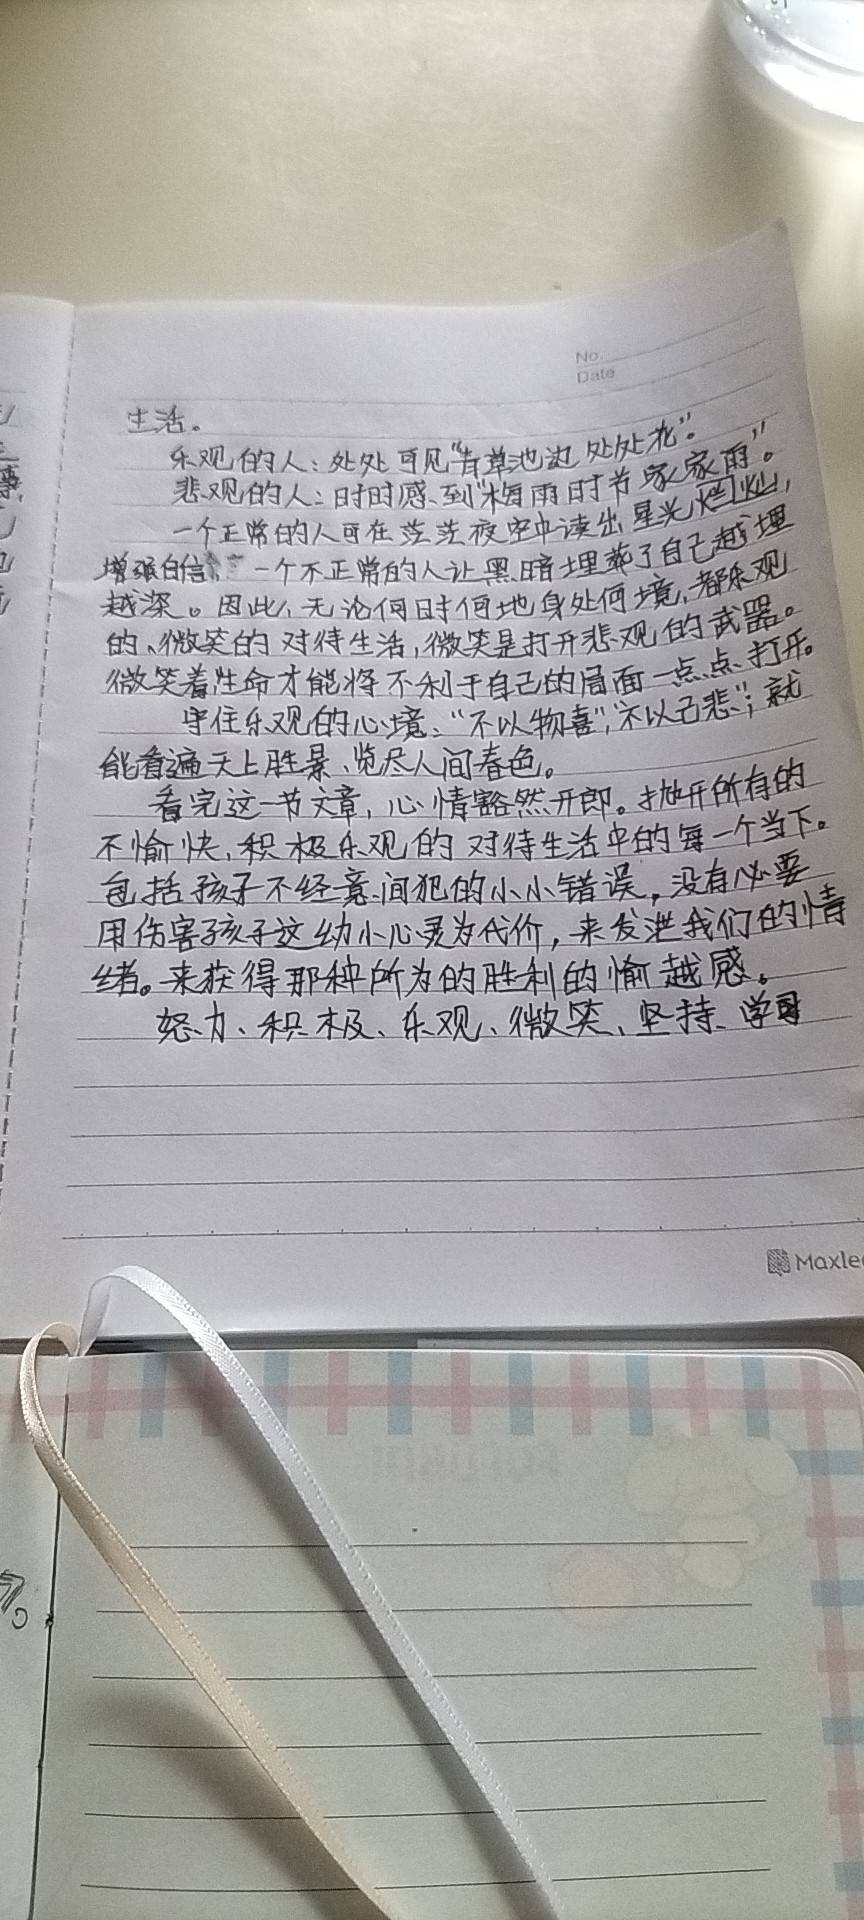 No.
Date
生活。
乐观的人：处处可见“青草池边处处花”。
悲观的人：时时感到“梅雨时节家家雨”。
一个正常的人可在茫茫夜空中读出星光灿烂，
增强自信 一个不正常的人让黑暗埋葬了自己越埋
越深。因此，无论何时何地身处何境，都乐观
的、微笑的对待生活，微笑是打开悲观的武器。
微笑着生命才能将不利于自己的局面一点点打开。
守住乐观的心境、“不以物喜”，“不以己悲”；就
能看遍天上胜景、览尽人间春色。
看完这一节文章，心情豁然开郎。抛开所有的
不愉快、积极乐观的对待生活中的每一个当下。
包括孩子不经意间犯的小小错误，没有必要
用伤害孩子这幼小心灵为代价，来发泄我们的情
绪。来获得那种所为的胜利的愉越感。
努力、积极、乐观、微笑、坚持、学习